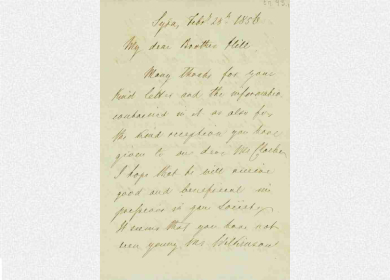 Syra, Feb. 29th 1856
My dear Brother Hill.
Many thanks for your
kind letter and the information
contained in it as also for
the kind reception you have
given to our dear Mr
I hope that he will receive
good and beneficent im
pressions in your Society
It seems that you have not
seen young Mr